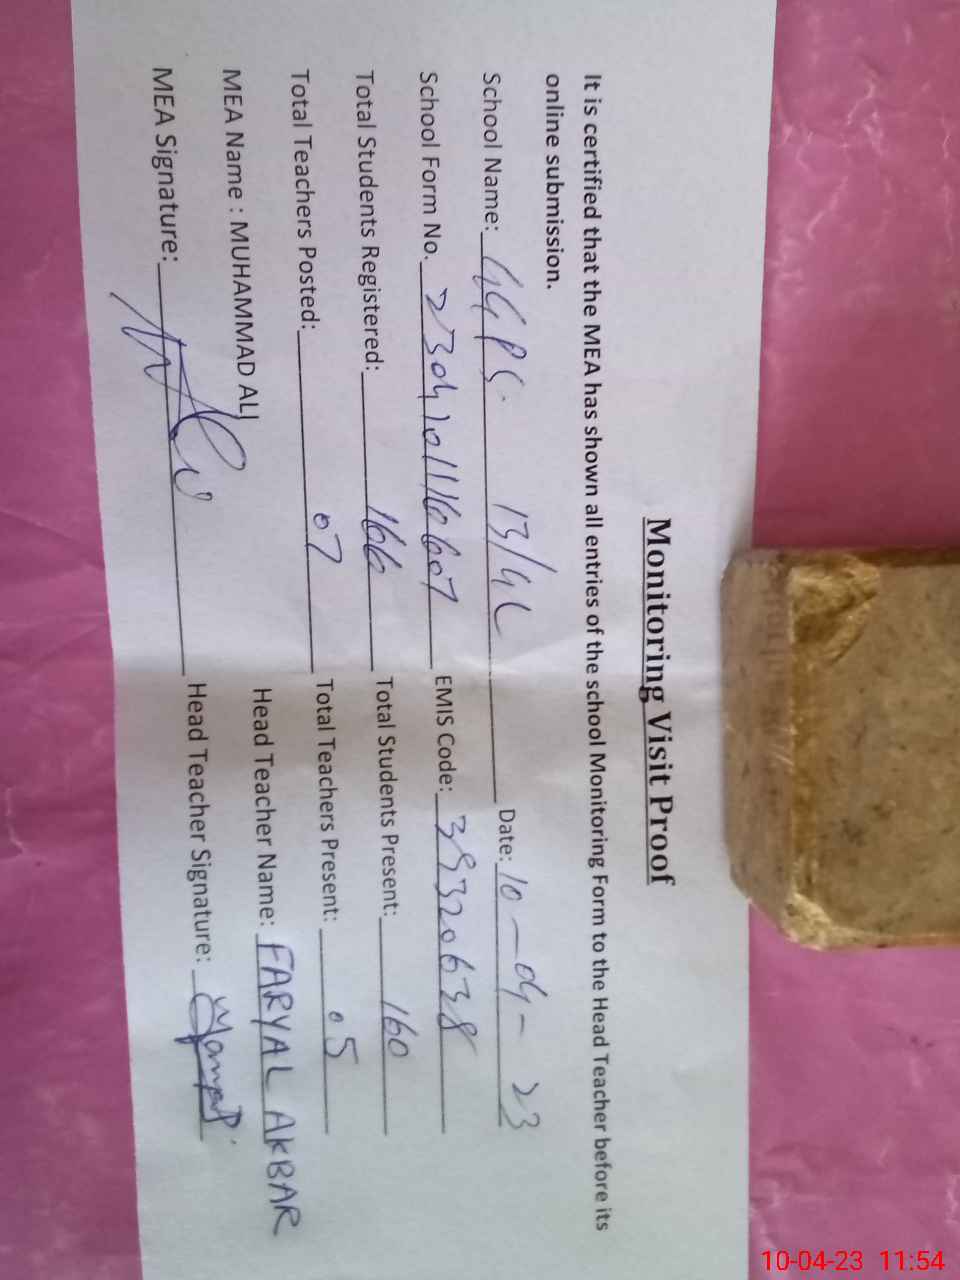 Monitoring Visit Proof
It is certified that the MEA has shown all entries of the school Monitoring Form to the Head Teacher before its
online submission.
School Name: GGPS. 13/4L Date: 10-04-23
School Form No. 2304101116607 EMIS Code: 39320638
Total Students Registered: 166 Total Students Present: 160
Total Teachers Posted: 07 Total Teachers Present: 05
MEA Name : MUHAMMAD ALI Head Teacher Name: FARYAL AKBAR
MEA Signature: Head Teacher Signature:
10-04-23 11:54